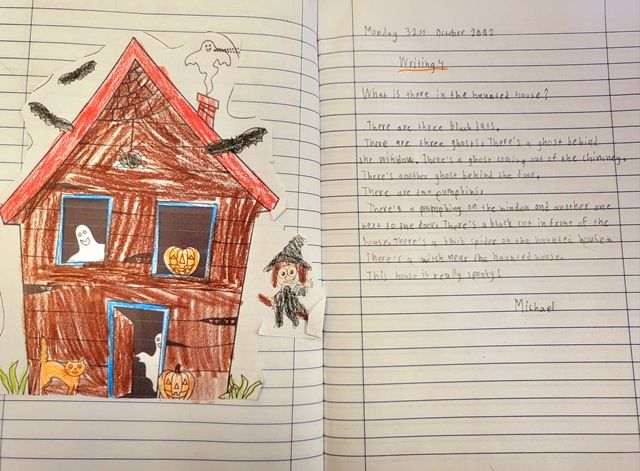 Monday 31st October 2022
Writing 4
What is there in the haunted house?
There are three black bats.
There are three ghosts. There's a ghost behind
the window. There's a ghost coming out of the chimney.
There's another ghost behind the door.
There are two pumpkins.
There's a pumpking on the window and another one
next to the door. There's a black in front of the
house. There's a black spider on the haunted house.
There's a witch near the haunted house.
This house is really spooky!
Michael